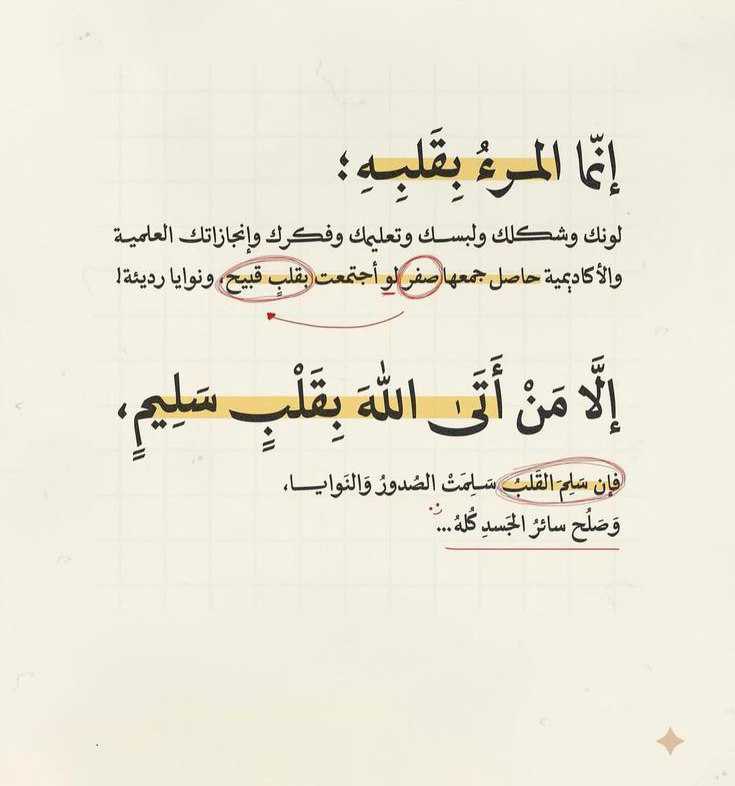 إنّما المرءُ بِقَلبِهِ؛
لونك وشكلك ولبسك وتعليمك وفكرك وإنجازاتك العلمية
والأكاديمية حاصل جمعها صفر لو أجتمعت بقلبٍ قبيح، ونوايا رديئة!
إلَّا مَنْ أَتَىٰ اللهَ بِقَلْبٍ سَلِيمٍ،
فإن سَلِمَ القَلبُ سَلِمَتْ الصُدورُ وَالنَوايا،
وَصَلُح سائرُ الجَسدِ كُلهُ...